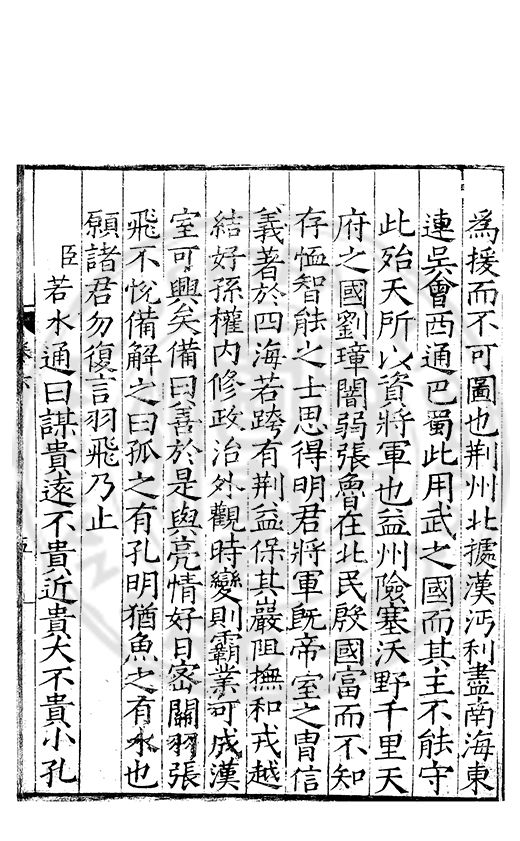 為援而不可圖也荆州北據漢沔利盡南海東
連吳會西通巴蜀此用武之國而其主不能守
此殆天所以資將軍也益州險塞沃野千里天
府之國劉璋闇弱張魯在北民殷國富而不知
存恤智能之士思得明君將軍既帝室之胄信
義著於四海若跨有荆益保其巖阻撫和戎越
結好孫權内修政治外觀時變則霸業可成漢
室可興矣備曰善於是與亮情好日密關羽張
飛不悅備解之曰孤之有孔明猶魚之有水也
願諸君勿復言羽飛乃止
臣若水通曰謀貴遠不貴近貴大不貴小孔